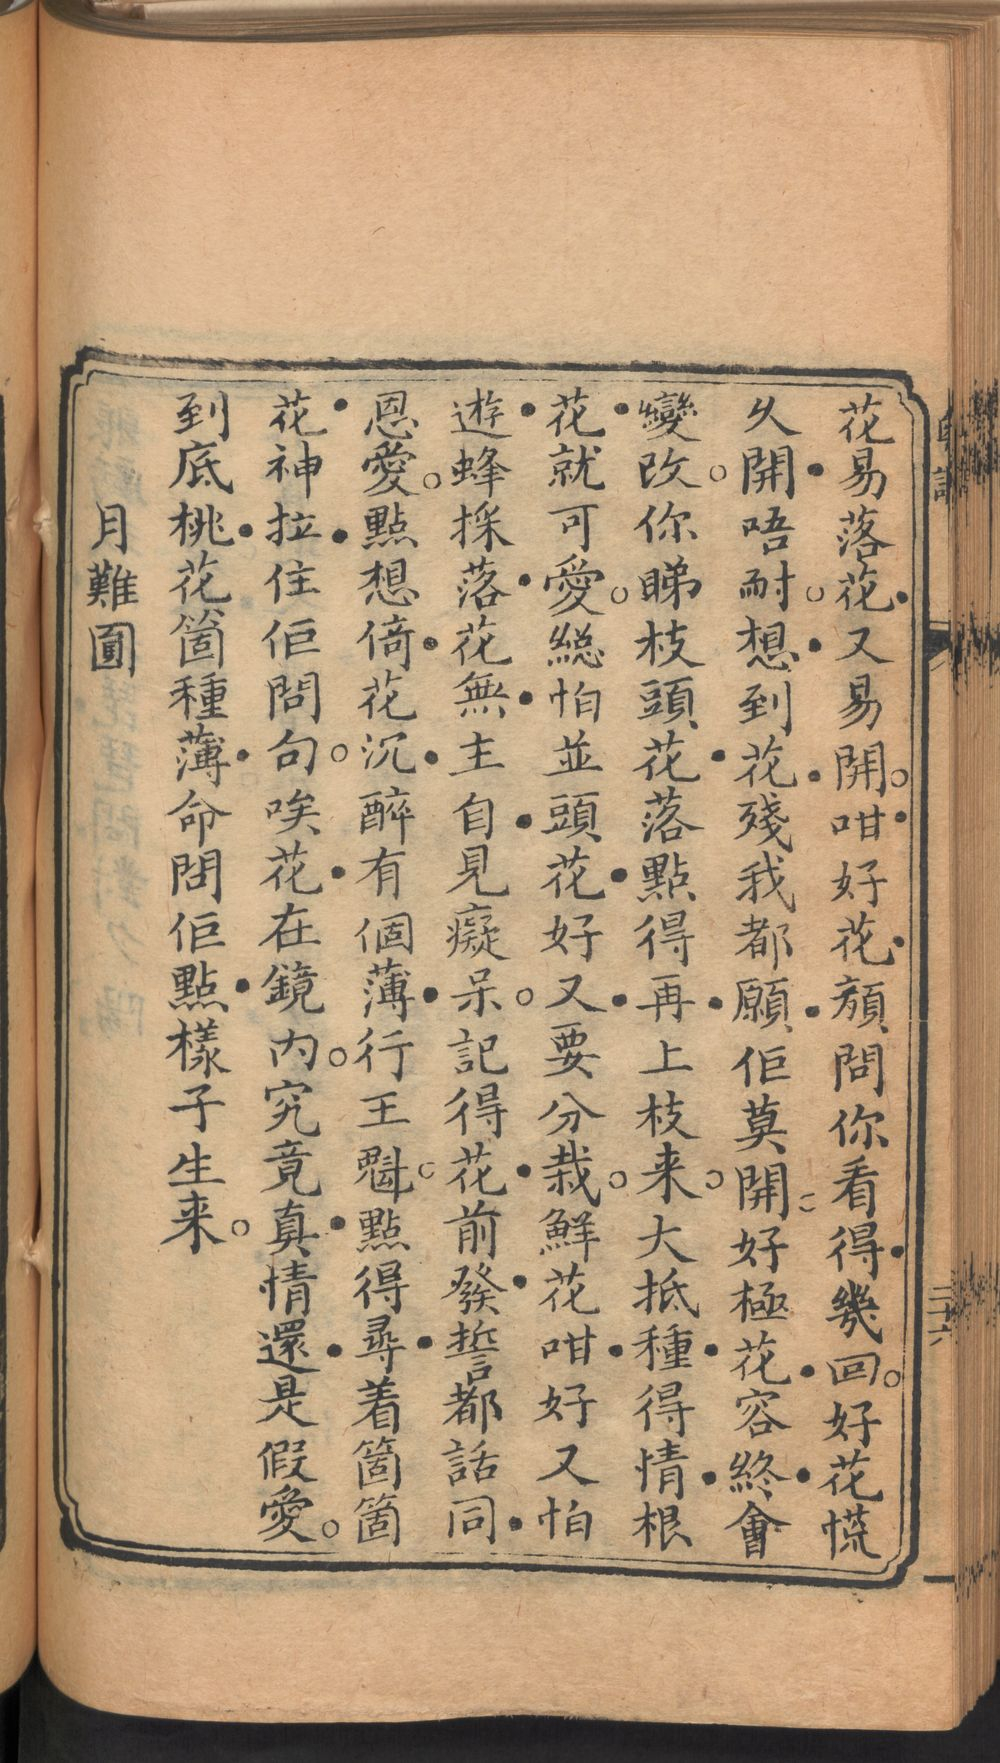 花易落花又易開。咁好花顏問你看得幾回。好花慌
久開唔耐。想到花殘我都願佢莫開。好極花容終會
變改。你睇枝頭花落點得再上枝来。大抵種得情根
花就可愛。緫怕並頭花好又要分栽。鮮花咁好又怕
遊蜂採落花無主自見癡呆。記得花前發誓都話同
恩愛。點想倚花沉醉有個薄行王魁。點得尋着箇箇
花神拉住佢問句。唉花在鏡內。究竟真情還是假愛。
到底桃花箇種薄命問佢點樣子生来。
月難圓
三十六